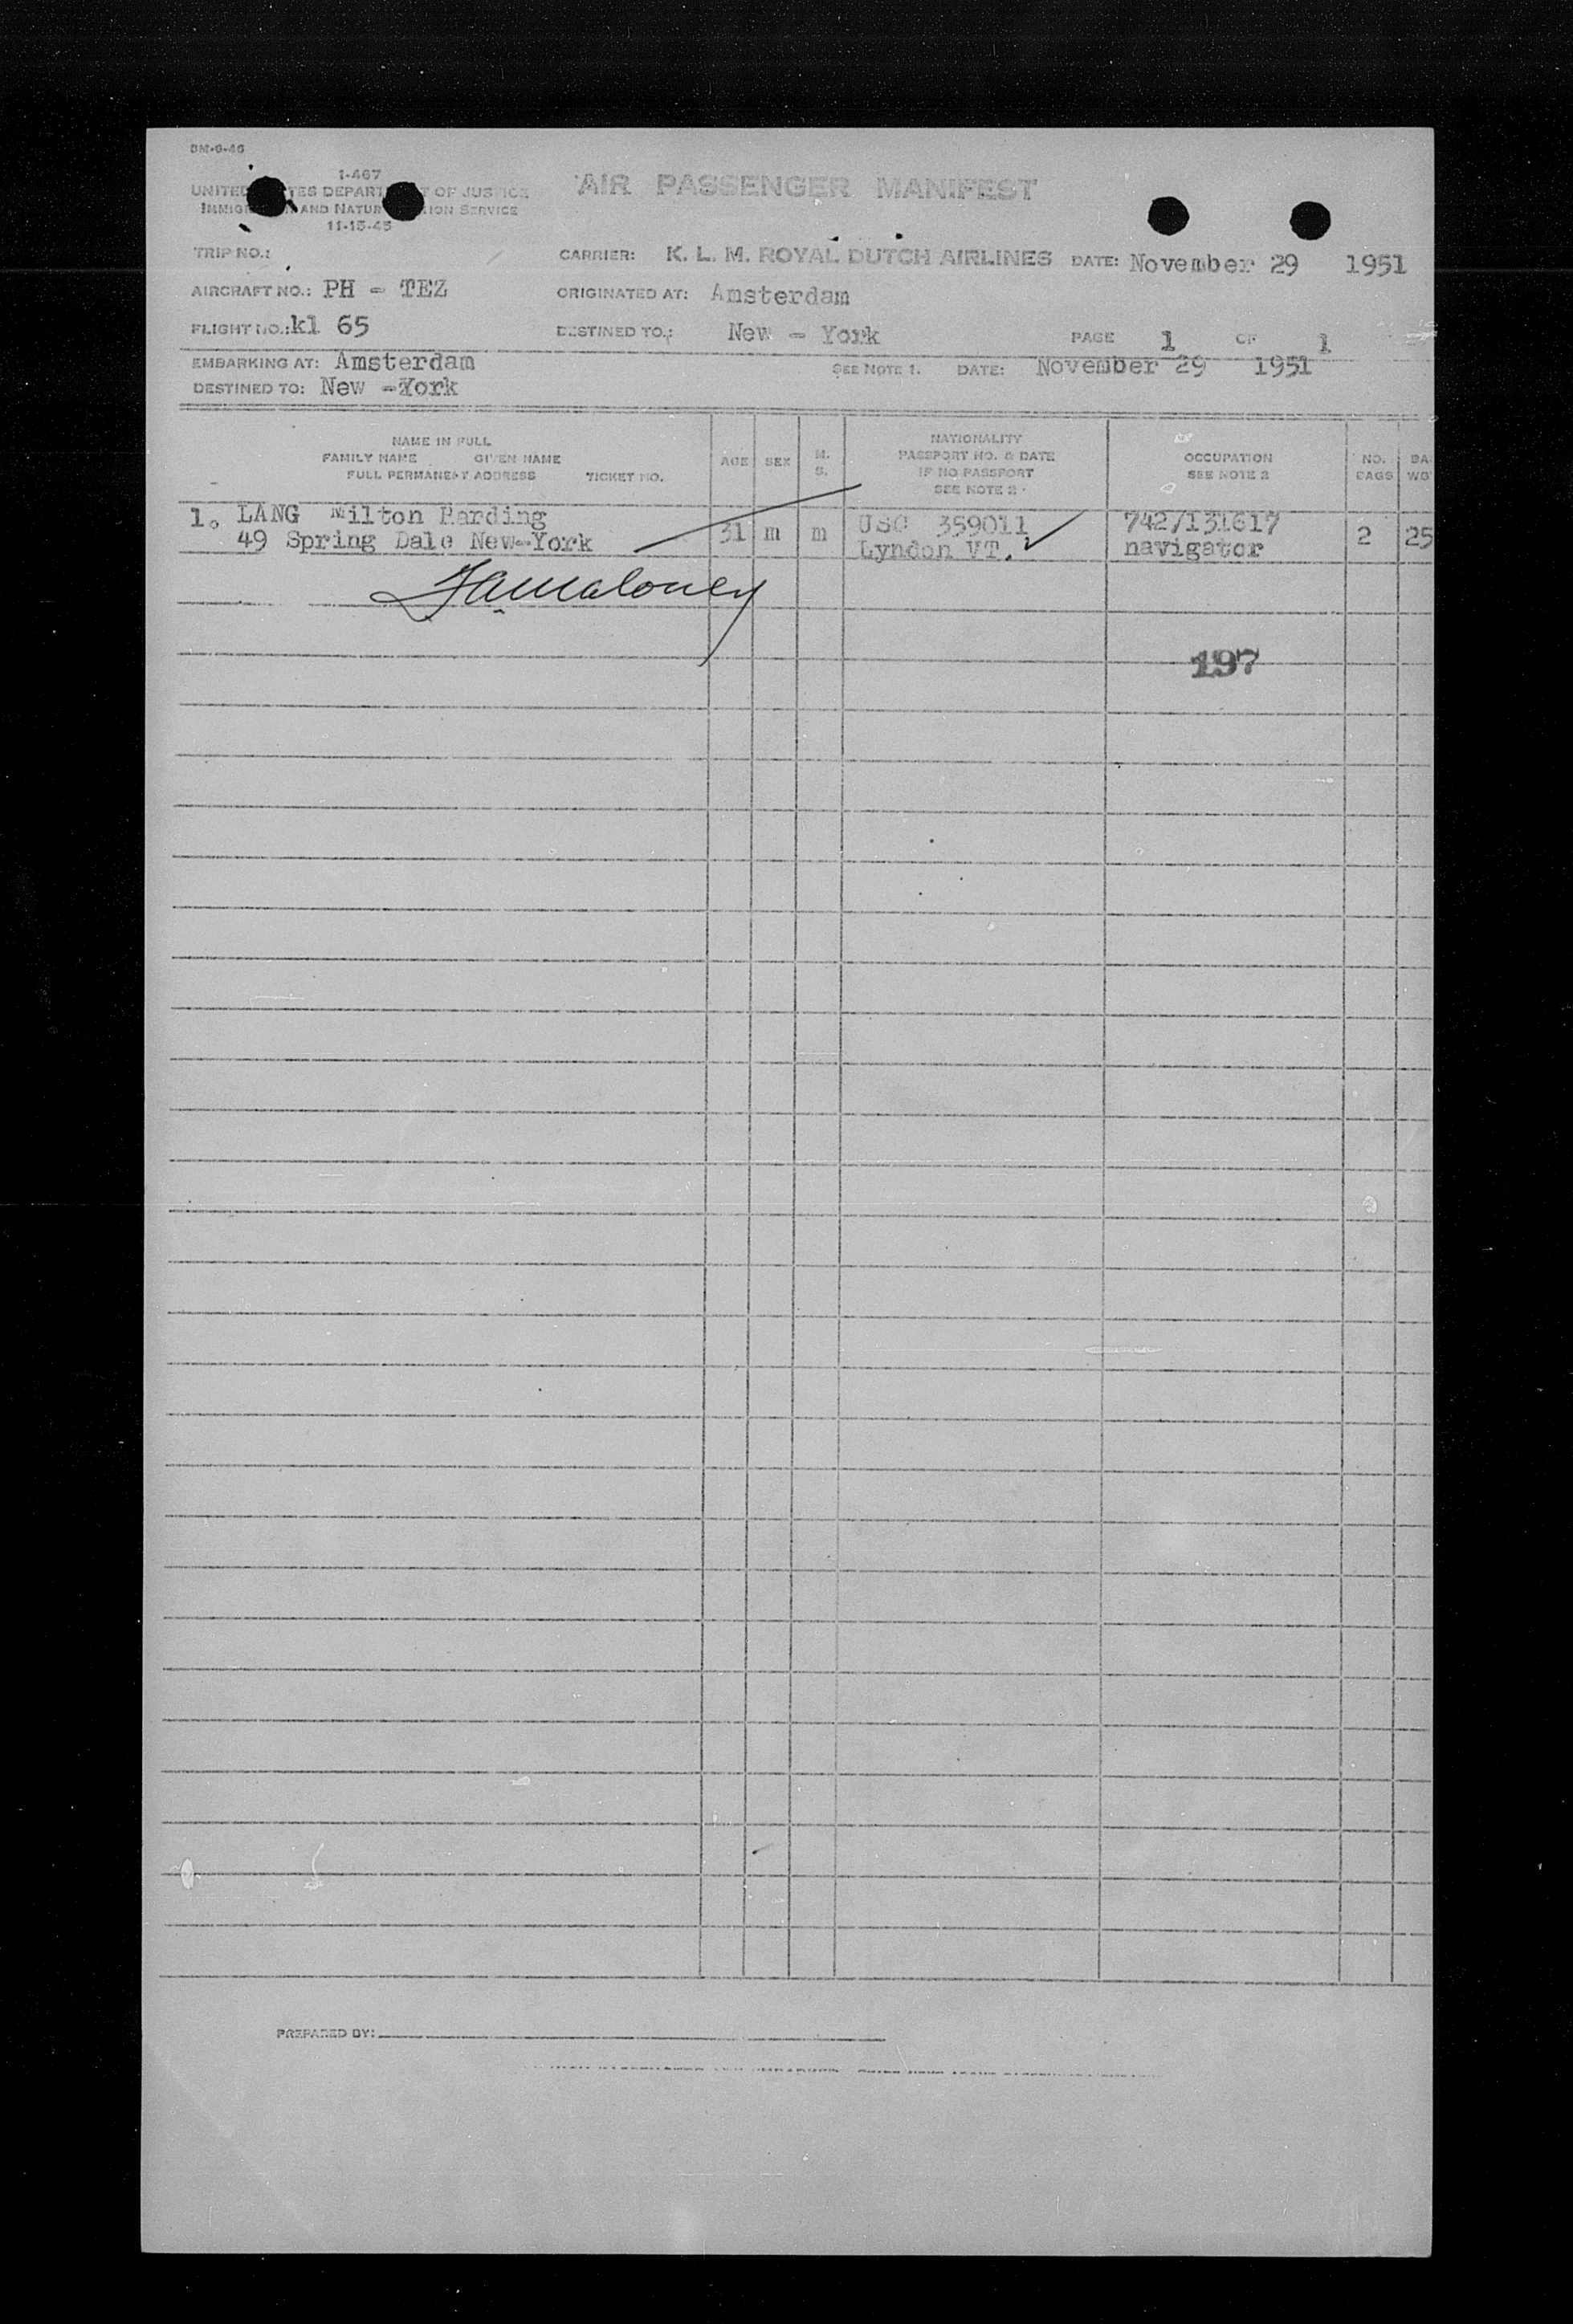 DM-6-46
I-467
UNITED STATES DEPARTMENT OF JUSTICE
IMMIGRATION AND NATURALIZATION SERVICE
11-15-45
AIR PASSENGER MANIFEST
TRIP NO.:
CARRIER: K. L. M. ROYAL DUTCH AIRLINES DATE: November 29 1951
AIRCRAFT NO.: PH - TEZ ORIGINATED AT: Amsterdam
FLIGHT NO.: kl 65 DESTINED TO.: New - York PAGE 1 OF 1
EMBARKING AT: Amsterdam SEE NOTE 1. DATE: November 29 1951
DESTINED TO: New -York
NAME IN FULL
FAMILY NAME GIVEN NAME
FULL PERMANENT ADDRESS TICKET NO.
AGE SEX M. S.
NATIONALITY
PASSPORT NO. & DATE
IF NO PASSPORT
SEE NOTE 2
OCCUPATION
SEE NOTE 2
NO. BAGS
BA WG
1. LANG Milton Harding 31 m m USC 359011 742/131617 2 25
49 Spring Dale New-York Lyndon VT. navigator
Maloney
197
PREPARED BY: